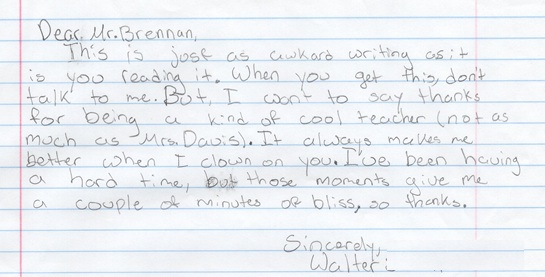 Dear Mr. Brennan,
This is just as awkard writing as it
is you reading it. When you get this, don't
talk to me. But, I want to say thanks
for being a kind of cool teacher (not as
much as Mrs. Davis). It always makes me
better when I clown on you. I've been having
a hard time, but those moments give me
a couple of minutes of bliss, so thanks.
Sincerely,
Walter :